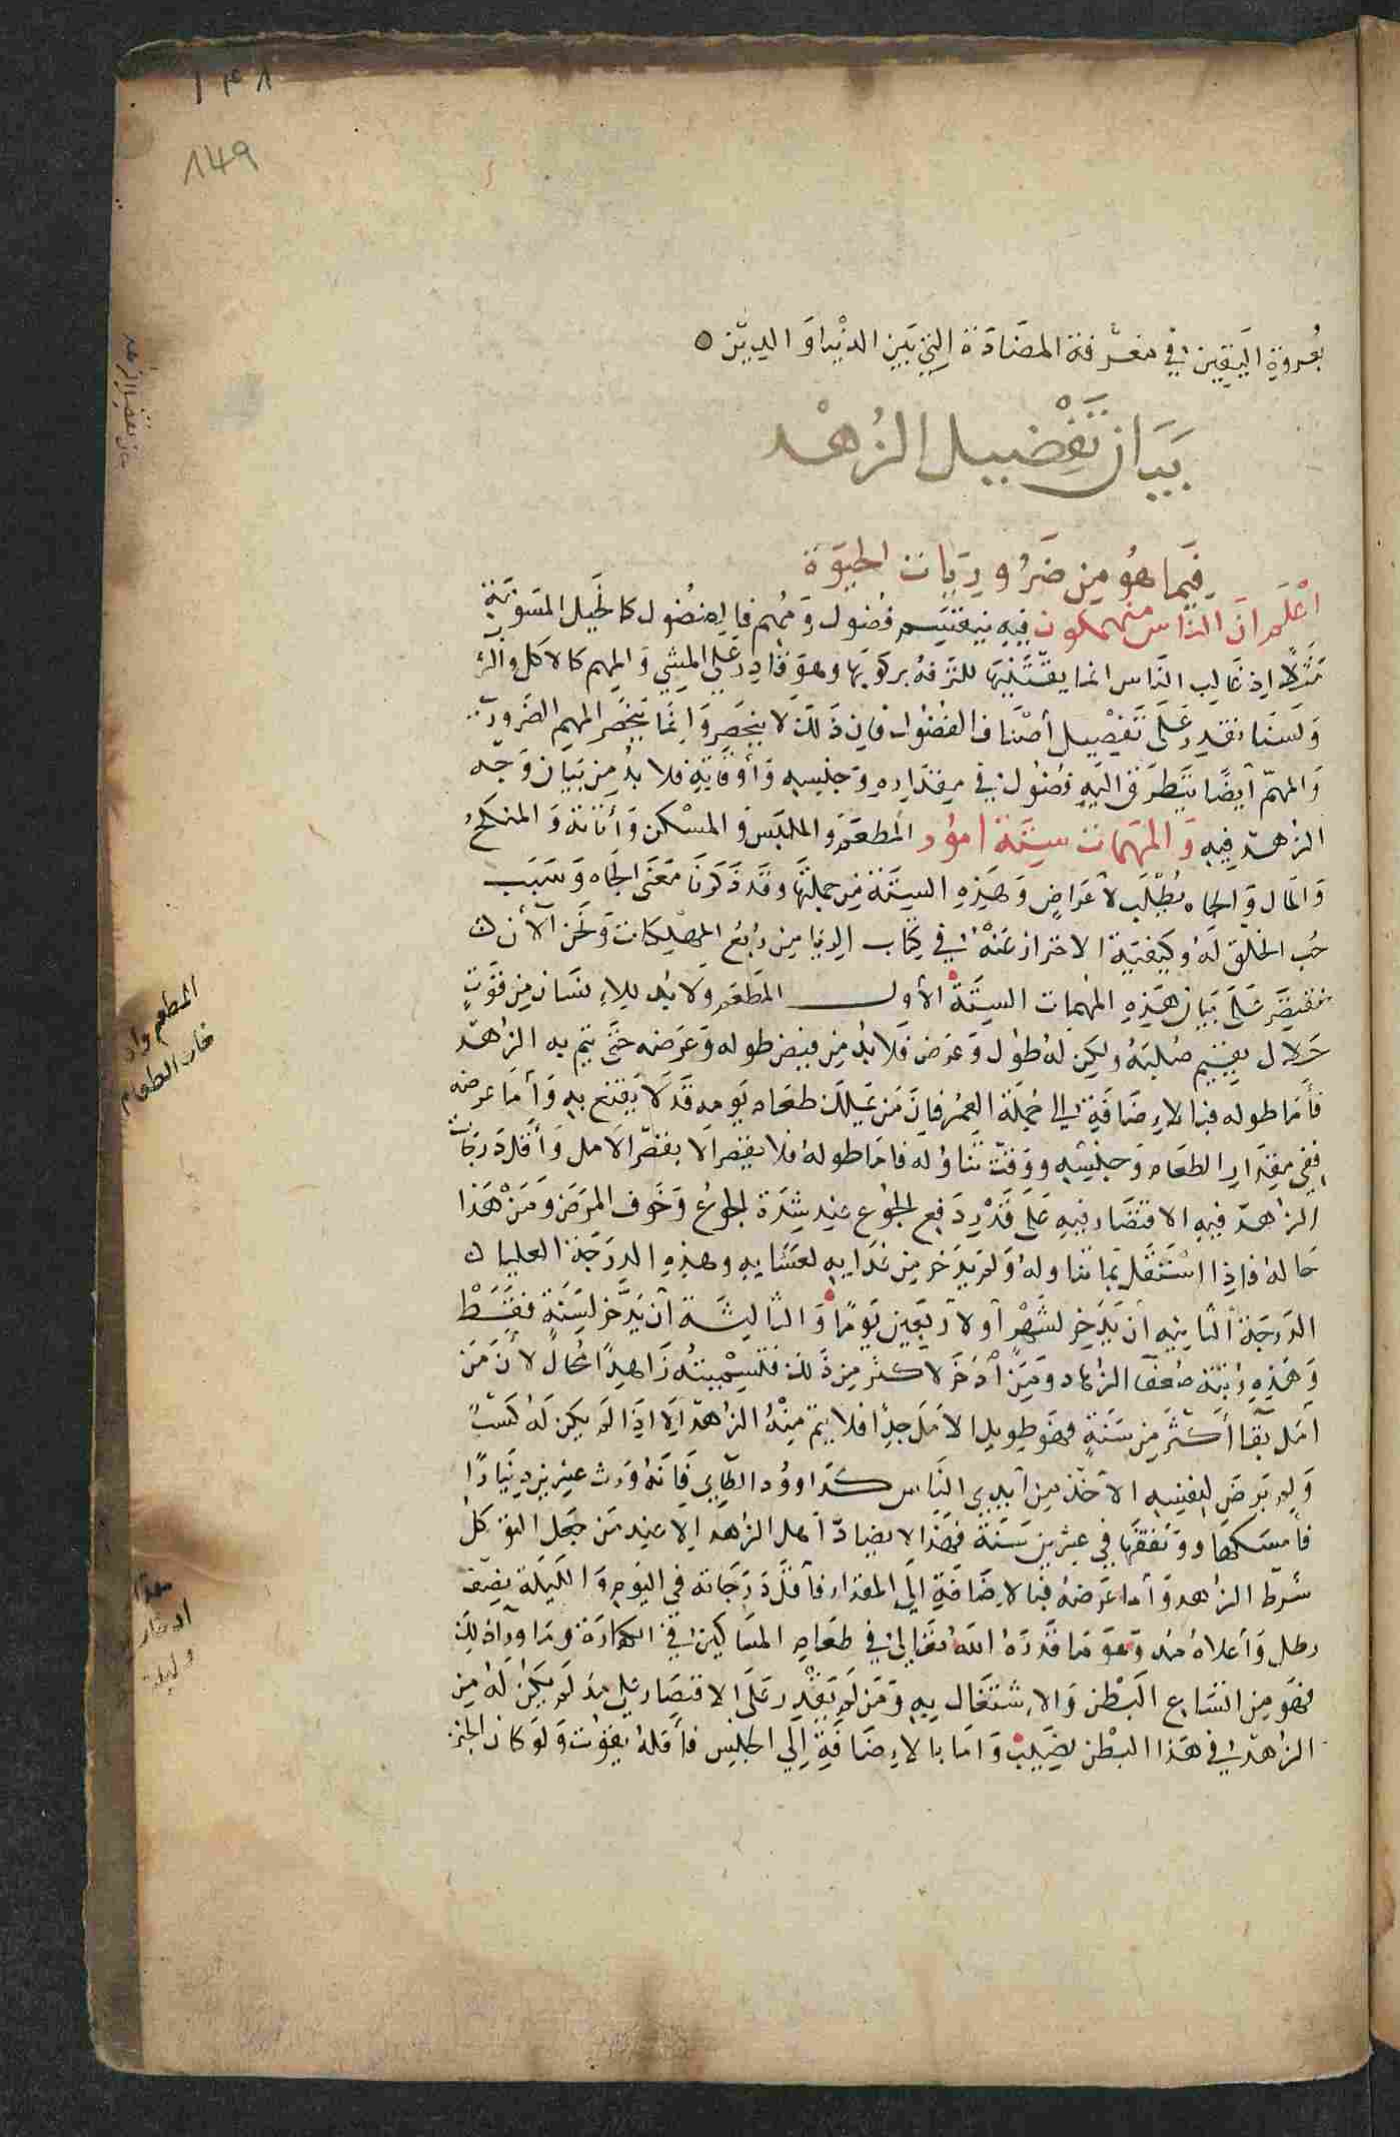 ١٤٨
٨٤٩
بعُروةِ اليَقين في مَعْرفة المضَادَة التي بَين الدنْيا وَ الديْن ٥
بَيَان تَفْضيل الزُهْد
فيمَا هُو مِن ضَرُوريَات الحيَوة
اعْلَم انَ الناسَ منهمكون فيهِ ينقسَم فضول وَ مُهم فالفضُول كالخَيل المسَومَةِ
مَثَلاً اذ غَالب النَاس انما يقتَنيهَا للترَفهُ بركوبَها وهوَ قادِر عَلى المشي وَ المهم كالاكل وَالشر
وَ لسنَا نقدِر عَلَى تَفْصِيل أصْنَاف الفضُول فان ذَلكَ لا ينحَصِر وَانمَا يَنحَصَر المهم الضَروري
وَ المهمّ أيضًا يَتطرَق اليَه فضُول في مِقدَاره وَ جنسِهِ وَ أوقَاتِهِ فلا بدُ مِن بَيان وَجه
الزهد فيهِ وَ المهمَات سِتَة امُور المطعَم وَ الملبَس وَ المسْكن وَ أثاثهُ وَ المنكَحُ
وَ المَال وَ الجاه يُطلَب لأغرَاضٍ وَ هَذِهِ السِتَة مِن جملتهَا وَقد ذَكَرنَا مَعنَى الجَاه وَ سَبَب
حُب الخلق لَهُ وَ كَيفيَة الاحتراز عَنْهُ في كتاب الريا مِن رُبع المهلكات وَ نَحن الآن
نقتصَر عَلَى بَيان هَذِهِ المهمات السِتَة الأول المطعَم وَلا بد للإنسَان مِن قوتٍ
حَلال يقيم صُلبَهُ وَلكِن لهُ طول وَ عَرض فلا بُد مِن قبض طوله وَعَرضه حَتى يتم به الزهد
فأمَا طوله فبالاضَافةِ الى جُملَة العمُر فانَ مَن يَملك طعَام يَومِه قد لا يقنع بهِ وَ أمَا عرضه
ففي مِقدَار الطعَام وَ جنسِه وَ وَقت تَناوُله فامَا طولهُ فلا يقصر الا بقصر الأمل وَ أقل دَرجَات
الزُهد فيهِ الاقتصَار فيهِ عَلَى قَدْر دَفع الجوع عِند شِدَة الجوع وَ خَوف المرَض وَ مَنْ هَذا
حَالهُ فاذا اسْتقل بمَا تنَاولهُ وَلم يدَخر مِن غدَايهِ لعَشَايهِ وهذِهِ الدرَجَة العليا
الدرَجَة الثانِيه أن يَدَخِر لشَهْرٍ أو لأربَعِين يَومًا وَ الثالِثَة أن يَدَّخر لسَنةٍ فقَط
وَ هَذِهِ رُتبَة ضُعفَآ الزهاد وَمَن ادَّخَر لأكثر مِن ذَلك فتسْميتُه زَاهِدًا مُحال لأن مَن
أمَل بَقآ أكثرَ مِن سَنةٍ فهوَ طويل الأمَل جِدًا فلا يتم مِنهُ الزُهد إلا اذَا لَم يكن لَهُ كسبٌ
وَ لم يَرضَ لنفسِهِ الأخذ مِن أيدِي النَاس كدَاووُد الطَايي فَانهُ وَرث عِشرين دِينَارًا
فأمسَكهَا وَ نَفقهَا في عِشرين سَنَة فهَذا لا يضادّ أصل الزُهد إلا عِند مَن جَعل التوكل
شَرط الزهد وَ أما عَرضهُ فبالاضَافةِ إلى المقدَار فأقل دَرجَاته في اليَوم وَ الليلة نِصف
رطل وَ أعلاه مُد وَهوَ مَا قَدرَهُ اللهُ تعَالى في طعَام المسَاكين في الكفارَة وَمَا وَرَآ ذَلك
فهوَ مِن اتسَاع البَطْن وَ الاشتغَال بهِ وَ مَن لَم يَقدر عَلَى الاقتصَار عَلى مُد لَم يَكُن لَهُ مِن
الزهد في هَذا البَطْن نصَيب وَ امَا بالإضَافةِ إلى الجنس فأقلهُ يقوت وَلَو كان الخبز
المطعم واد
خار الطعام